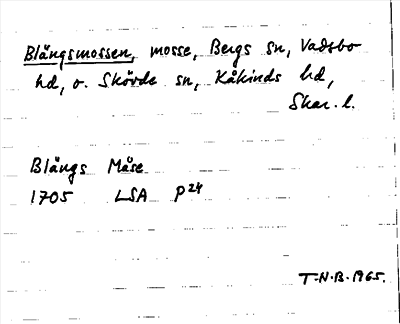 Blängsmossen, mosse, Bergs sn, Vadsbo
hd, o. Skövde sn, Kåkinds hd,
Skar. l.
Blängs Måse
1705 LSA P24
T-N.B. 1965.